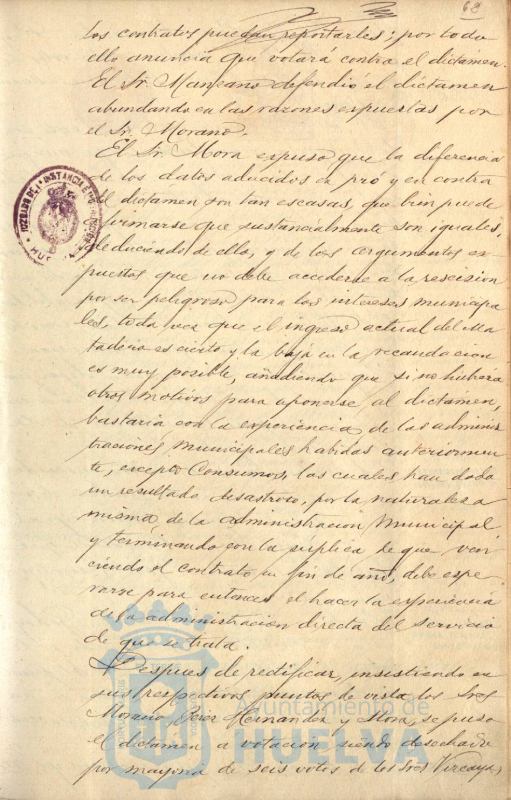 68
los contratos puedan reportarles; por todo
ello anuncia que votará contra el dictamen.
El Sr. Manzano defendió el dictamen
abundando en las razones expuestas por
el Sr. Morano.
El Sr. Mora expuso que la diferencia
de los datos aducidos en pró y en contra
del dictamen son tan escasas, que bien puede
afirmarse que sustancialmente son iguales,
deduciendo de ello, y de los argumentos ex-
puestos que no debe accederse a la rescision
por ser peligroso para los intereses municipa-
les, toda vez que el ingreso actual del Ma-
tadero es cierto y la baja en la recaudacion
es muy posible, añadiendo que si no hubiera
otros motivos para oponerse al dictamen,
bastaria con la experiencia de las adminis-
traciones municipales habidas anteriormen-
te, excepto Consumos, las cuales han dado
un resultado desastroso, por la naturaleza
misma de la administracion municipal
y terminando con la súplica de que ven-
ciendo el contrato en fin de año, debe espe-
rarse para entonces el hacer la experiencia
de la administracion directa del servicio
de que se trata.
Despues de rectificar, insistiendo en
sus respectivos puntos de vista los Sres
Morano, Perez Hernandez y Mora, se puso
el dictamen a votacion siendo desechado
por mayoria de seis votos de los Sres Vizcaya,
Ayuntamiento de
HUELVA